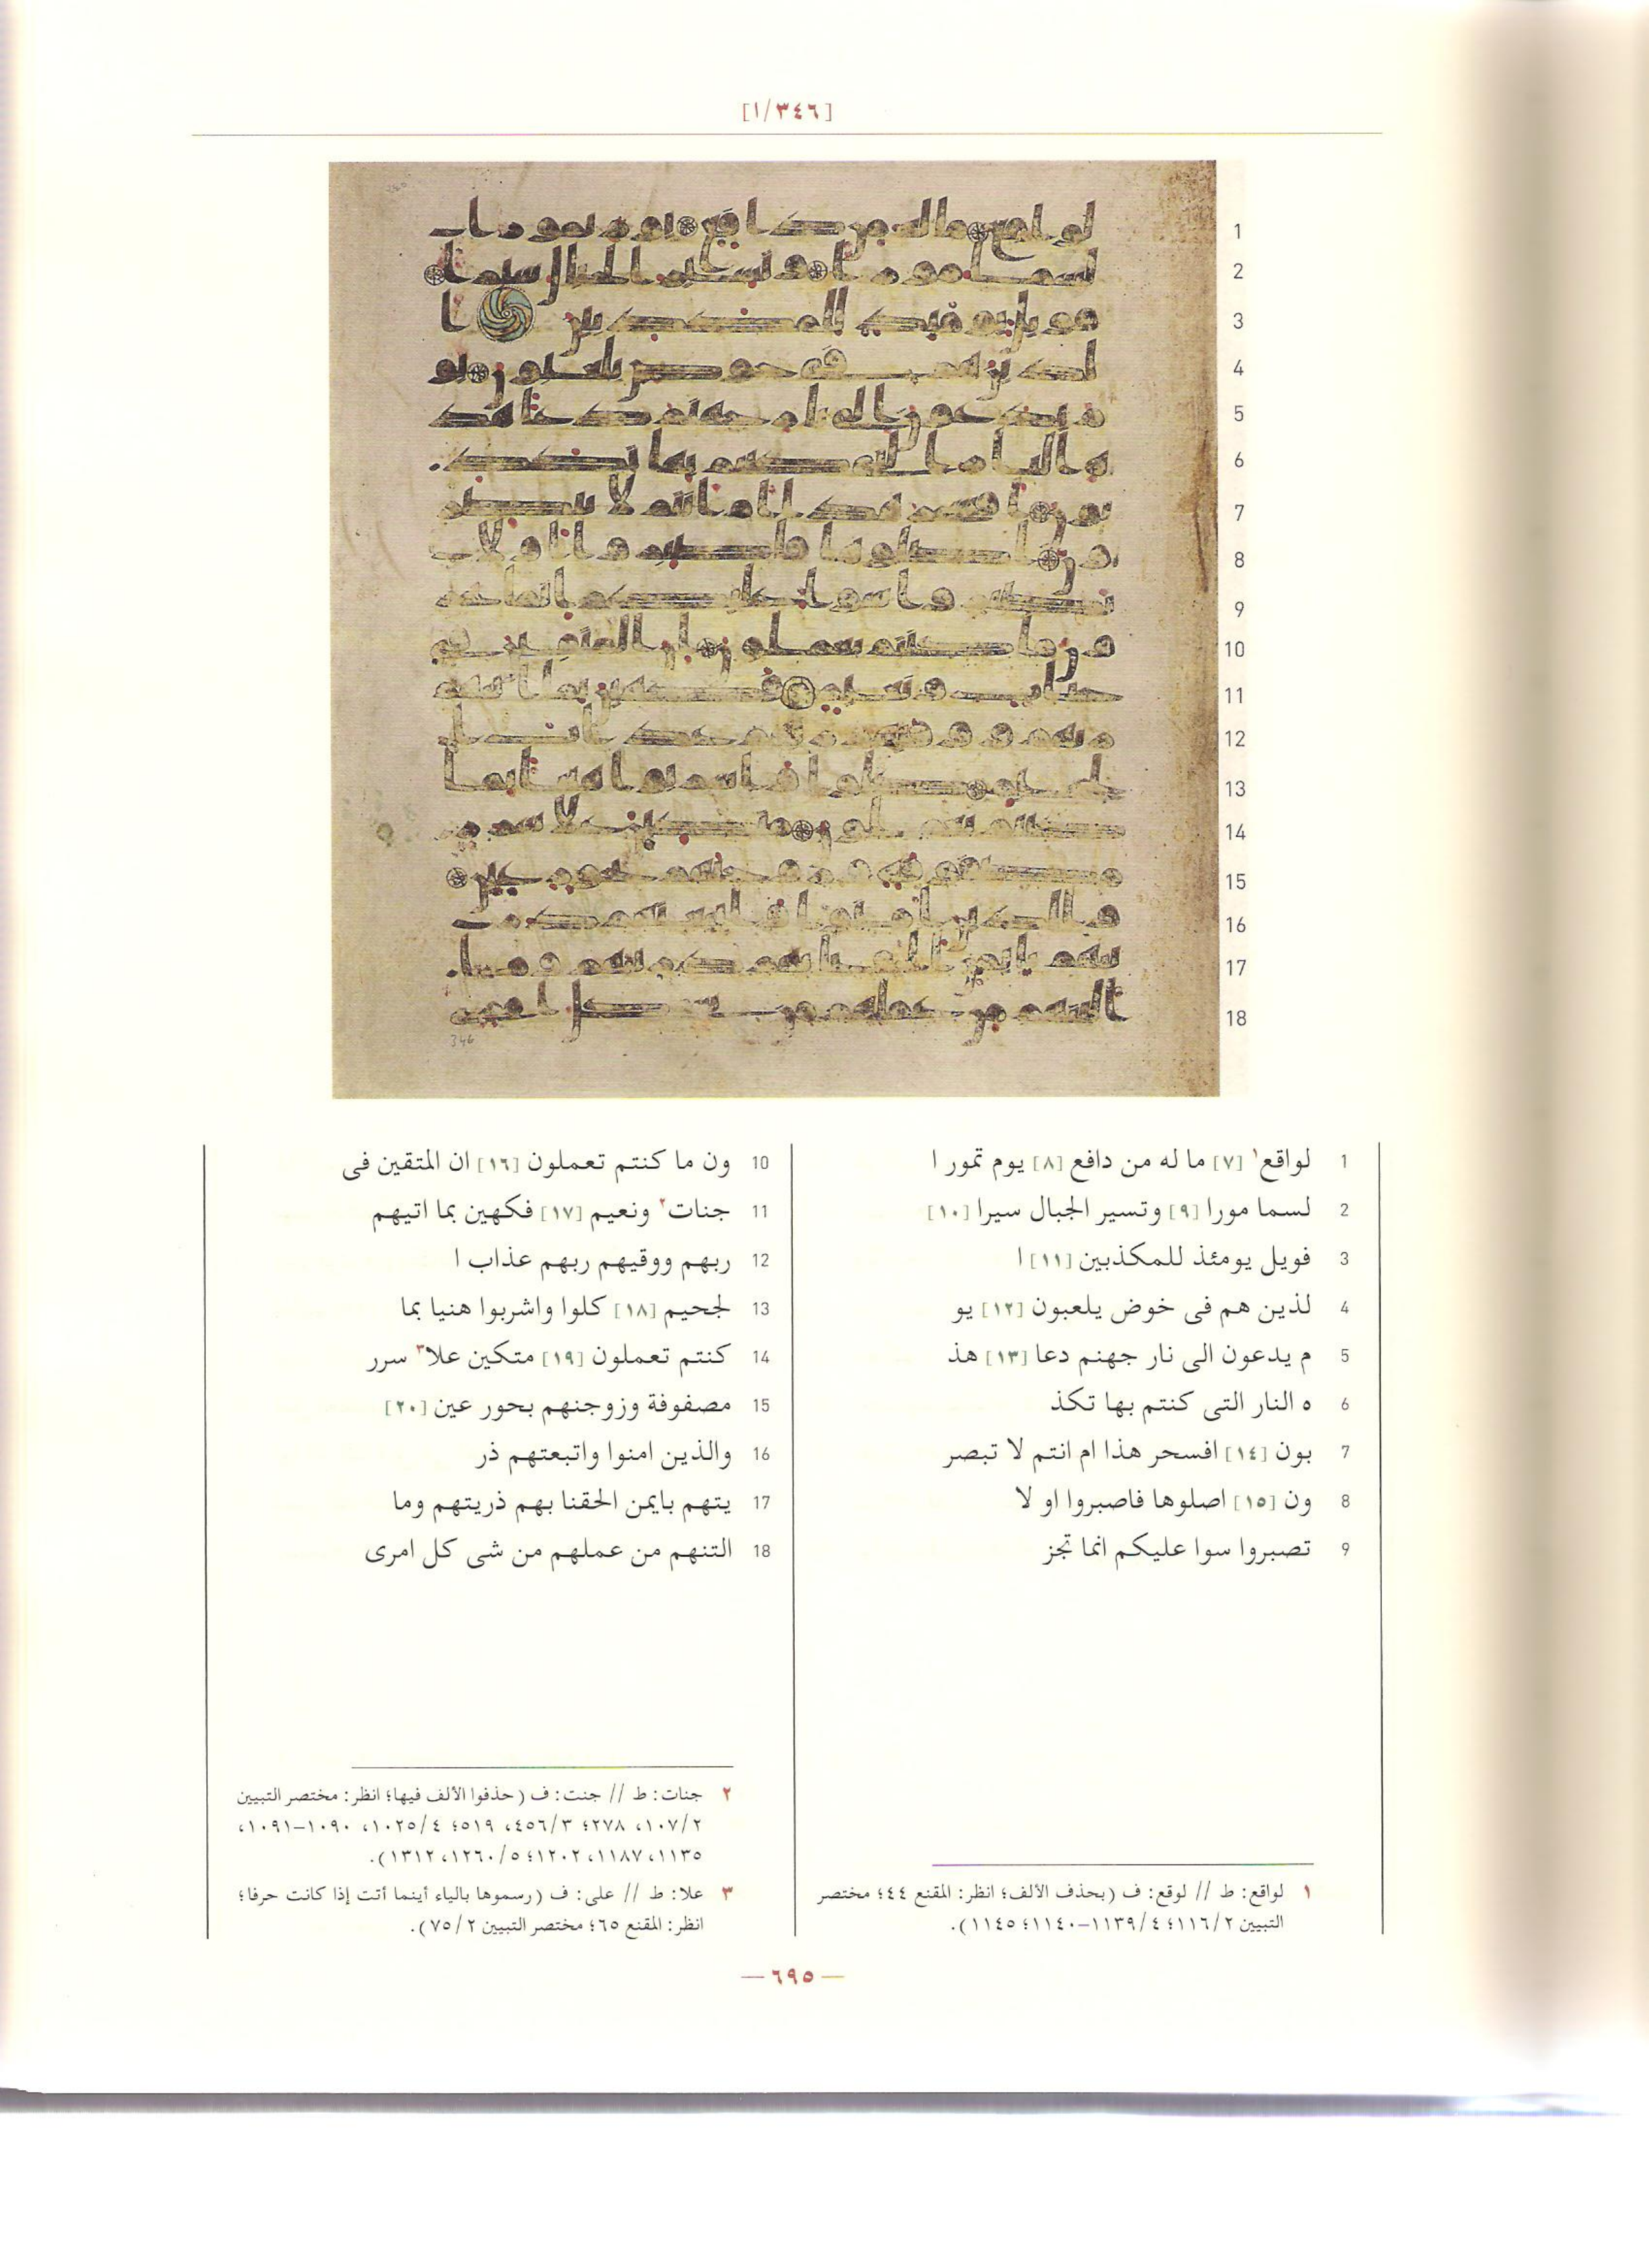 [٣٤٦/١]
1 لواقع١ [٧] ما له من دافع [٨] يوم تمور ا
2 لسما مورا [٩] وتسير الجبال سيرا [١٠]
3 فويل يومئذ للمكذبين [١١] ا
4 لذين هم فى خوض يلعبون [١٢] يو
5 م يدعون الى نار جهنم دعا [١٣] هذ
6 ه النار التى كنتم بها تكذ
7 بون [١٤] افسحر هذا ام انتم لا تبصر
8 ون [١٥] اصلوها فاصبروا او لا
9 تصبروا سوا عليكم انما تجز
10 ون ما كنتم تعملون [١٦] ان المتقين فى
11 جنات٢ ونعيم [١٧] فكهين بما اتيهم
12 ربهم ووقيهم ربهم عذاب ا
13 لجحيم [١٨] كلوا واشربوا هنيا بما
14 كنتم تعملون [١٩] متكين علا٣ سرر
15 مصفوفة وزوجنهم بحور عين [٢٠]
16 والذين امنوا واتبعتهم ذر
17 يتهم بايمن الحقنا بهم ذريتهم وما
18 التنهم من عملهم من شى كل امرى
١ لواقع: ط // لوقع: ف (بحذف الألف؛ انظر: المقنع ٤٤؛ مختصر
التبيين ١١٦/٢؛ ١١٣٩/٤-١١٤٠؛ ١١٤٥).
٢ جنات: ط // جنت: ف (حذفوا الألف فيها؛ انظر: مختصر التبيين
١٠٧/٢، ٢٧٨؛ ٤٥٦/٣، ٥١٩؛ ١٠٢٥/٤، ١٠٩٠-١٠٩١،
١١٣٥، ١١٨٧، ١٢٠٢؛ ١٢٦٠/٥، ١٣١٢).
٣ علا: ط // على: ف (رسموها بالياء أينما أتت إذا كانت حرفا؛
انظر: المقنع ٦٥؛ مختصر التبيين ٧٥/٢).
— ٦٩٥ —